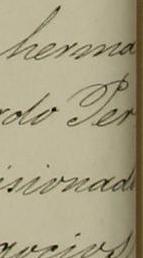 herma
rdo Per
isionad
gocios